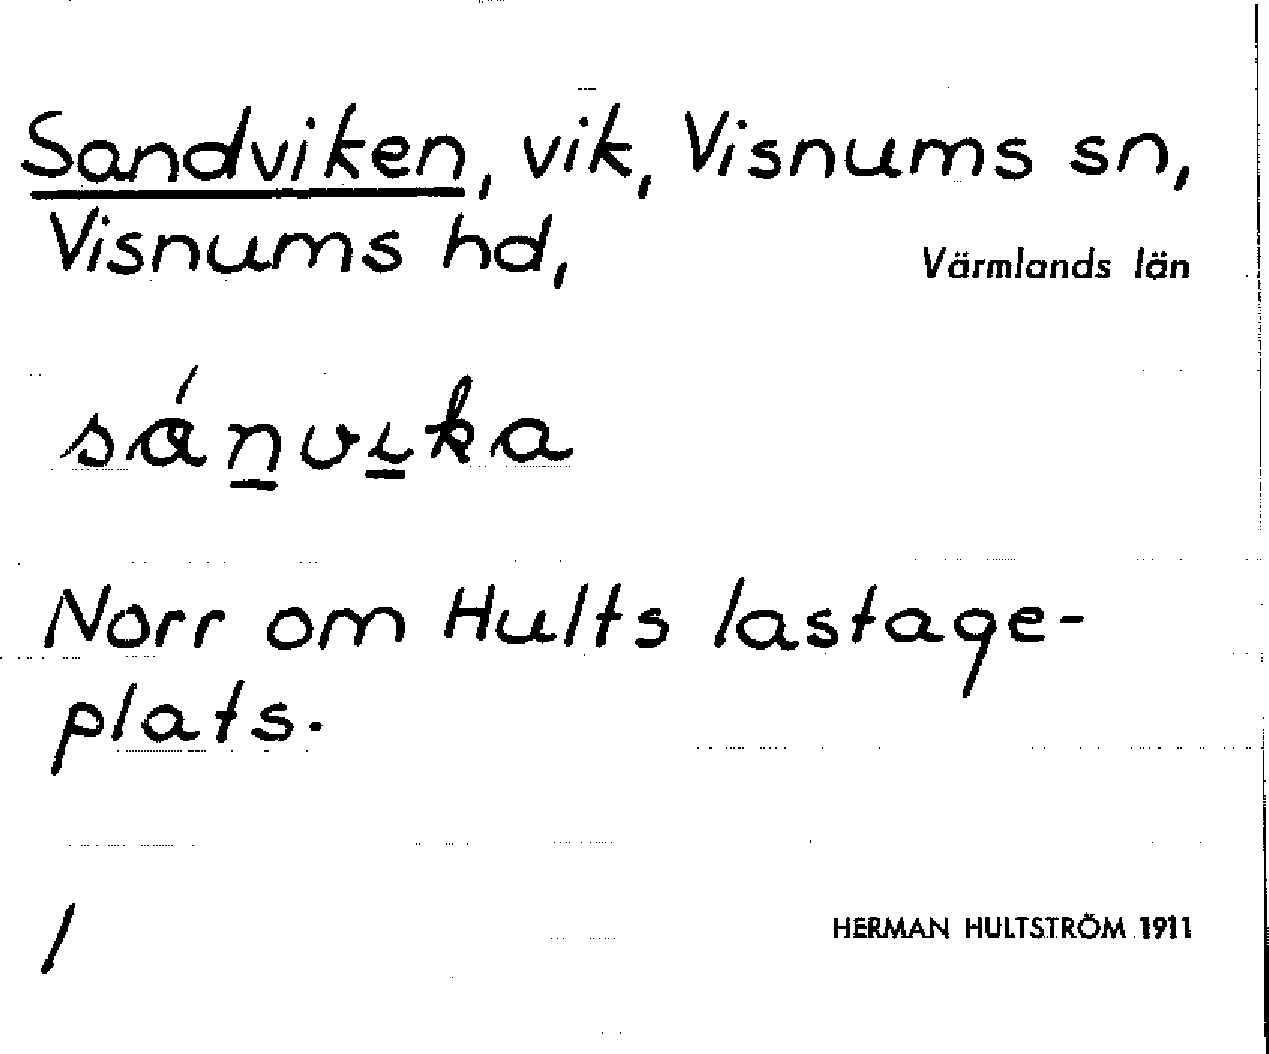 Sandviken, vik, Visnums sn,
Visnums hd,
Värmlands län
sánvika
Norr om Hults lastage-
plats.
/
HERMAN HULTSTRÖM 1911